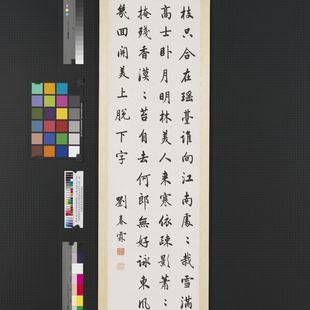 枝只合在瑤臺誰向江南處〻栽雪滿
高士卧月明林美人來寒依疎影蕭〻
掩殘香漠〻苔自去何郎無好詠東風
幾回開美上脫下字
劉春霖